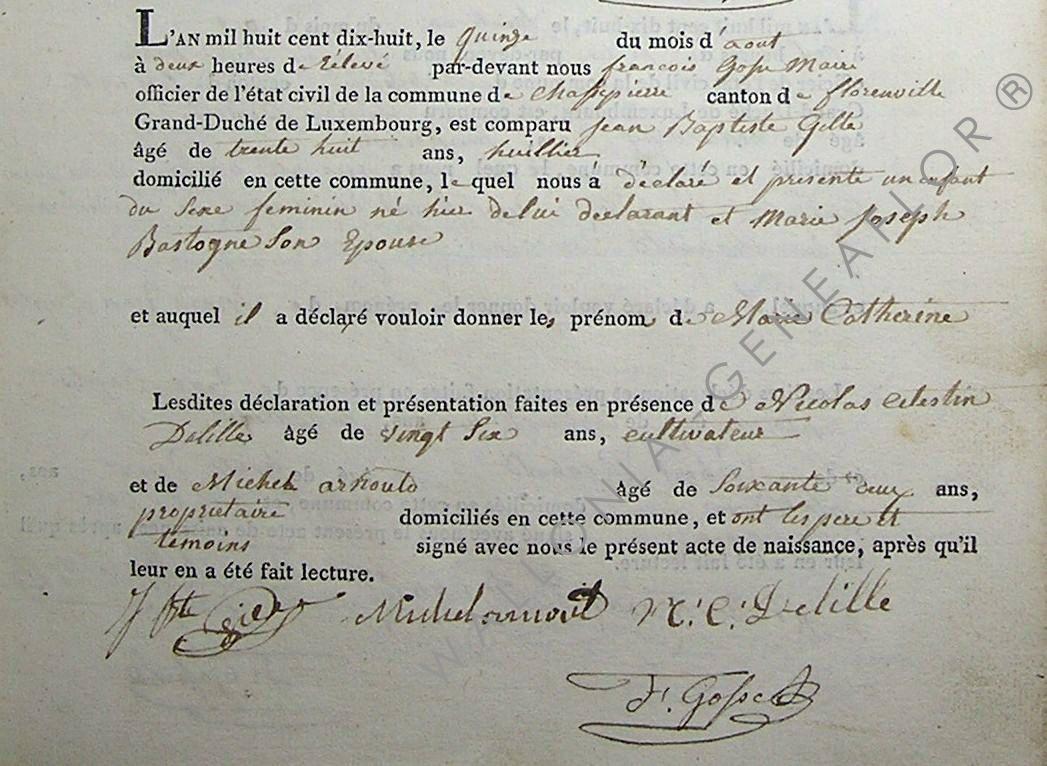 L'AN mil huit cent dix-huit, le quinze du mois d'aout
à deux heures de rélevé par-devant nous francois Gosse Maire
officier de l'état civil de la commune de Chassepierre canton de florenville
Grand-Duché de Luxembourg, est comparu jean Baptiste Gille
âgé de trente huit ans, huillier
domicilié en cette commune, le quel nous a déclaré et presenté un enfant
du sexe feminin né hier de lui declarant et Marie Joseph
Bastogne son Epouse
et auquel il a déclaré vouloir donner les prénom de Marie Catherine
Lesdites déclaration et présentation faites en présence de Nicolas Celestin
Delille âgé de vingt six ans, cultivateur
et de Michel arnould âgé de soixante deux ans,
proprietaire domiciliés en cette commune, et ont les pere et
temoins signé avec nous le présent acte de naissance, après qu'il
leur en a été fait lecture.
Michel arnould N. C. Delille
F. Gosse
WALLONIA GENEALOR ®